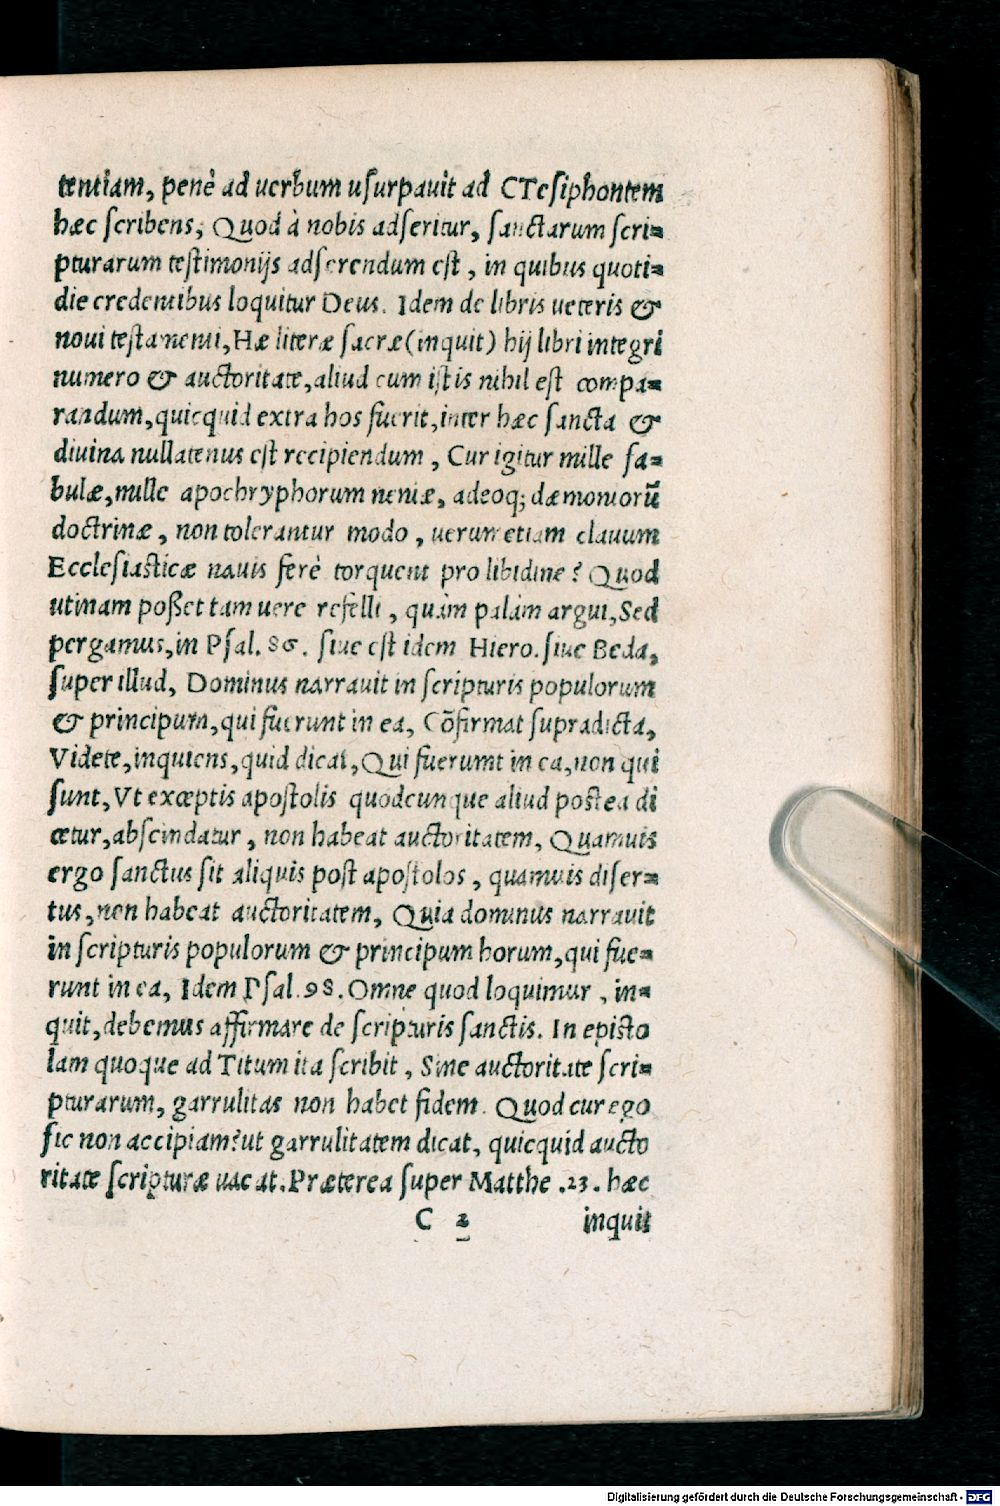 tentiam, penè ad uerbum usurpauit ad CTesiphontem
hæc scribens, Quod à nobis adseritur, sanctarum scri-
pturarum testimonijs adserendum est, in quibus quoti-
die credentibus loquitur Deus. Idem de libris ueteris &
noui testamenti, Hæ literæ sacræ (inquit) hij libri integri
numero & auctoritate, aliud cum istis nihil est compa-
randum, quicquid extra hos fuerit, inter hæc sancta &
diuina nullatenus est recipiendum, Cur igitur mille fa-
bulæ, mille apochryphorum neniæ, adeoq; dæmoniorũ
doctrinæ, non tolerantur modo, uerum etiam clauum
Ecclesiasticæ nauis ferè torquent pro libidine? Quod
utinam posset tam uere refelli, quàm palàm argui, Sed
pergamus, in Psal. 86. siue est idem Hiero. siue Beda,
super illud, Dominus narrauit in scripturis populorum
& principum, qui fuerunt in ea, Cõfirmat supradicta,
Videte, inquiens, quid dicat, Qui fuerumt in ea, non qui
sunt, Vt exceptis apostolis quodcunque aliud postea di
cetur, abscindatur, non habeat auctoritatem, Quamuis
ergo sanctus sit aliquis post apostolos, quamuis diser-
tus, non habeat auctoritatem, Quia dominus narrauit
in scripturis populorum & principum horum, qui fue-
runt in ea, Idem Psal. 98. Omne quod loquimur, in-
quit, debemus affirmare de scripturis sanctis. In episto
lam quoque ad Titum ita scribit, Sine auctoritate scri-
pturarum, garrulitas non habet fidem. Quod cur ego
sic non accipiam? ut garrulitatem dicat, quicquid aucto
ritate scripturæ uacat. Præterea super Matthe. 23. hæc
C 2 inquit
Digitalisierung gefördert durch die Deutsche Forschungsgemeinschaft - DFG